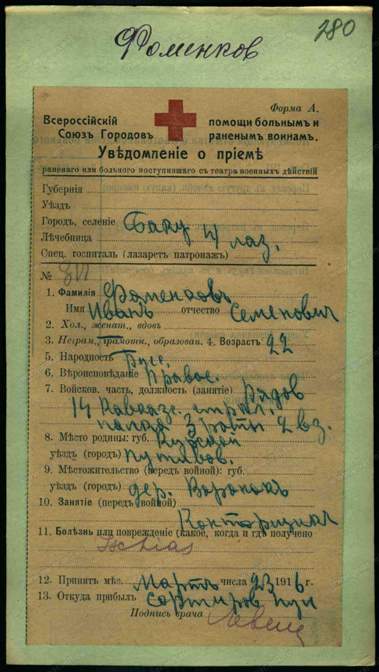 Фоменков
280
Форма А.
Всероссійскій Союзъ Городовъ
помощи больнымъ и раненымъ воинамъ.
Увѣдомленіе о пріемѣ
раненаго или больного поступившаго съ театра военныхъ дѣйствій
Губернія
Уѣздъ
Городъ, селеніе Баку
Лѣчебница лаз.
Спец. госпиталь (лазаретъ патронажъ)
№
1. Фамилія Фоменковъ
Имя Иванъ отчество Семеновичъ
2. Хол., женат., вдовъ
3. Неграм., грамотн., образован. 4. Возрастъ 22
5. Народность Русс.
6. Вѣроисповѣданіе Правос.
7. Войсков. часть, должность (занятіе) Рядов
14 Кавказс. стрѣл.
полка 3 роты 2 вз.
8. Мѣсто родины: губ. Курской
уѣздъ (городъ) Путивл.
9. Мѣстожительство (передъ войной): губ.
уѣздъ (городъ) дер. Воронокъ
10. Занятіе (передъ войной)
Конторщикъ
11. Болѣзнь или поврежденіе (какое, когда и гдѣ получено
Ischias
12. Принятъ мѣс. Мартъ числа 23 1916 г.
13. Откуда прибылъ сортиров. пун
Подпись врача